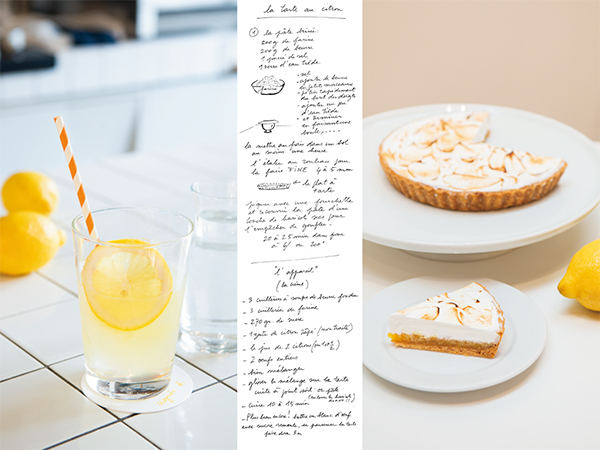 la tarte au citron
① la pâte brisée:
200g de farine
200g de beurre
1 pincée de sel
1 verre d'eau tiède
farine
- sel
- ajouter le beurre
en petits morceaux
- pétrir rapidement
du bout des doigts
- ajouter un peu
d'eau tiède
- et terminer
en faisant une
boule,....
la mettre au frais dans un bol
au moins une heure
l'étaler au rouleau pour
la faire FINE 4 à 5 mm
le plat à
tarte
piquer avec une fourchette
et recouvrir la pâte d'une
couche de haricot sec pour
l'empêcher de gonfler.
20 à 25 min dans four
à 6/ ou 200°
"l'appareil"
(la crème)
- 3 cuillères à soupe de beurre fondu
- 3 cuillerées de farine
- 270 gr. de sucre
- 1 zeste de citron râpé (non traité)
- le jus de 2 citrons (ou
- 2 oeufs entiers
- bien mélanger
- glisser le mélange sur la tarte
cuite à point sort
- cuire 10 à 15 min
- Plus bien encore! battre un blanc d'oeuf
avec sucre remonte, en parsemer la tarte
faire dra